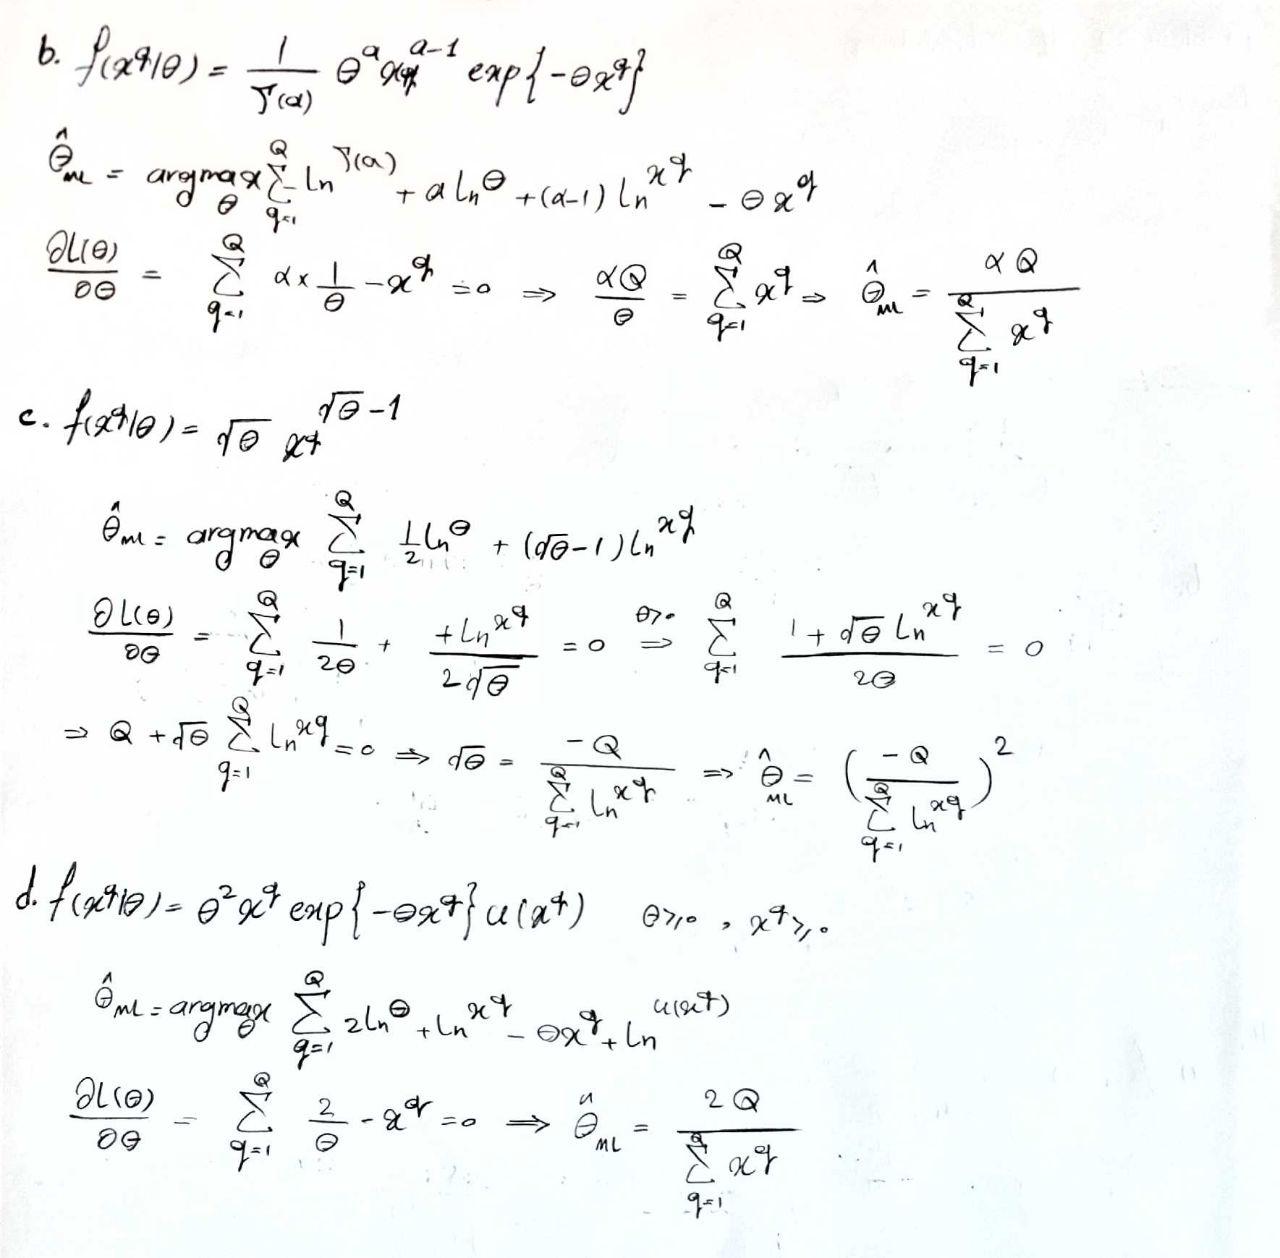 b. f(x^q|θ) = 1/Γ(α) θ^α x^q^{α-1} exp{-θx^q}
θ̂_ML = argmax_θ Σ_{q=1}^Q ln Γ(α) + α ln θ + (α-1) ln x^q - θx^q
∂L(θ)/∂θ = Σ_{q=1}^Q α × 1/θ - x^q = 0 ⇒ αQ/θ = Σ_{q=1}^Q x^q ⇒ θ̂_ML = αQ / Σ_{q=1}^Q x^q
c. f(x^q|θ) = √θ x^q^{√θ-1}
θ̂_ML = argmax_θ Σ_{q=1}^Q 1/2 ln θ + (√θ-1) ln x^q
∂L(θ)/∂θ = Σ_{q=1}^Q 1/2θ + +ln x^q / 2√θ = 0 ⇒^{θ>0} Σ_{q=1}^Q (1 + √θ ln x^q) / 2θ = 0
⇒ Q + √θ Σ_{q=1}^Q ln x^q = 0 ⇒ √θ = -Q / Σ_{q=1}^Q ln x^q ⇒ θ̂_ML = (-Q / Σ_{q=1}^Q ln x^q)^2
d. f(x^q|θ) = θ^2 x^q exp{-θx^q} u(x^q) θ≥0 , x^q≥0
θ̂_ML = argmax_θ Σ_{q=1}^Q 2 ln θ + ln x^q - θx^q + ln u(x^q)
∂L(θ)/∂θ = Σ_{q=1}^Q 2/θ - x^q = 0 ⇒ θ̂_ML = 2Q / Σ_{q=1}^Q x^q